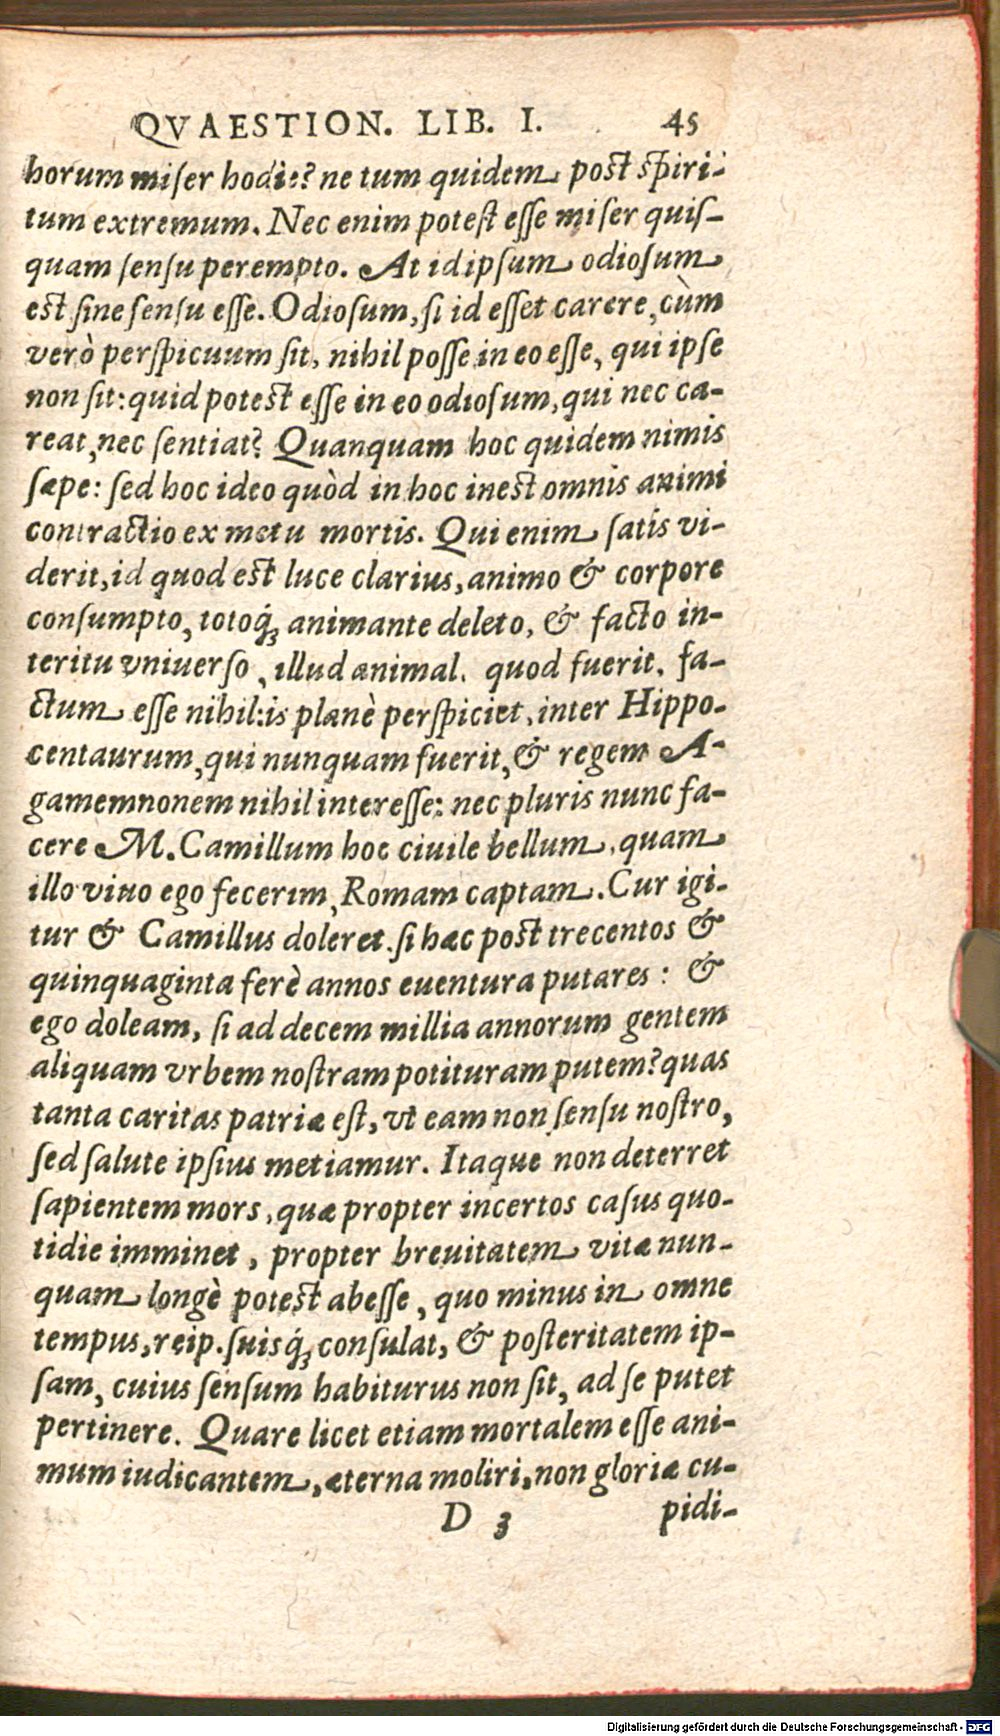 QVAESTION. LIB. I. 45
horum miser hodie? ne tum quidem post spiri-
tum extremum. Nec enim potest esse miser quis-
quam sensu perempto. At id ipsum odiosum
est sine sensu esse. Odiosum, si id esset carere, cùm
verò perspicuum sit, nihil posse in eo esse, qui ipse
non sit: quid potest esse in eo odiosum, qui nec ca-
reat, nec sentiat? Quanquam hoc quidem nimis
sæpe: sed hoc ideo quòd in hoc inest omnis animi
contractio ex metu mortis. Qui enim satis vi-
derit, id quod est luce clarius, animo & corpore
consumpto, totoq́; animante deleto, & facto in-
teritu vniuerso, illud animal, quod fuerit, fa-
ctum esse nihil: is planè perspiciet, inter Hippo-
centaurum, qui nunquam fuerit, & regem A-
gamemnonem nihil interesse: nec pluris nunc fa-
cere M. Camillum hoc ciuile bellum, quam
illo viuo ego fecerim, Romam captam. Cur igi-
tur & Camillus doleret, si hæc post trecentos &
quinquaginta ferè annos euentura putares: &
ego doleam, si ad decem millia annorum gentem
aliquam vrbem nostram potituram putem? quas
tanta caritas patriæ est, vt eam non sensu nostro,
sed salute ipsius metiamur. Itaque non deterret
sapientem mors, quæ propter incertos casus quo-
tidie imminet, propter breuitatem vitæ nun-
quam longè potest abesse, quo minus in omne
tempus, reip. suisq́; consulat, & posteritatem ip-
sam, cuius sensum habiturus non sit, ad se putet
pertinere. Quare licet etiam mortalem esse ani-
mum iudicantem, æterna moliri, non gloriæ cu-
D 3 pidi-
Digitalisierung gefördert durch die Deutsche Forschungsgemeinschaft - DFG